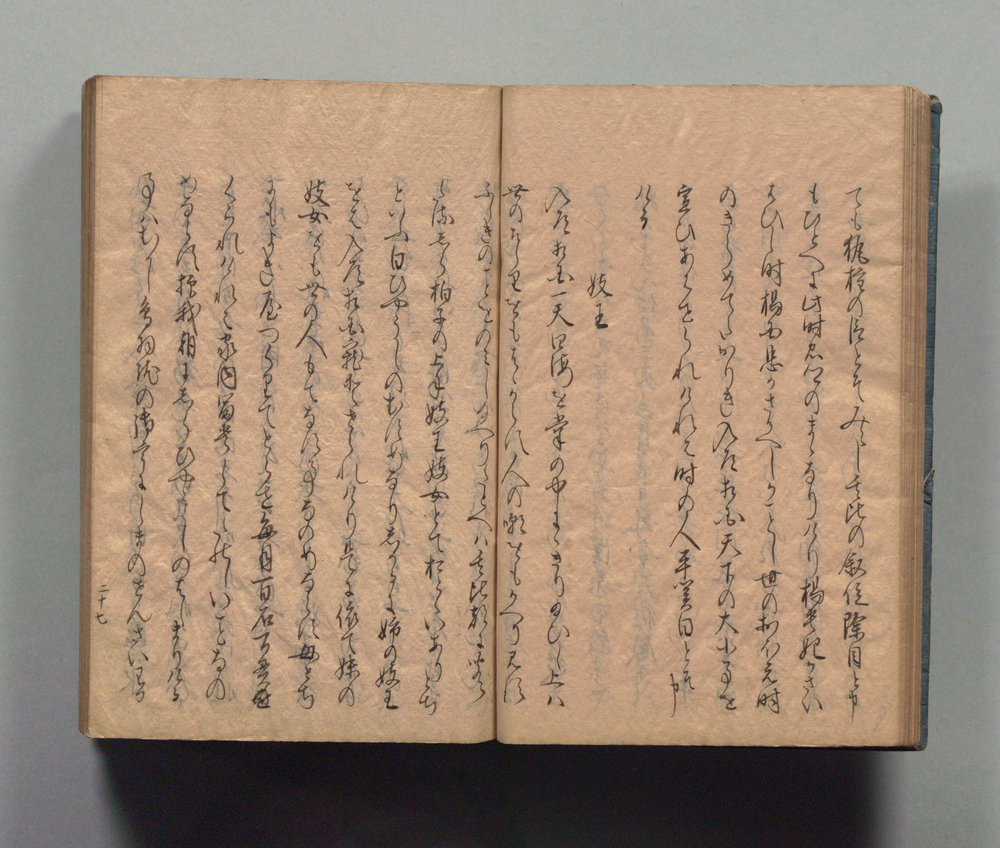 ても執柄の臣とそみえし其比の叙位除目と申
もひとへに此時忠卿のまゝなりけり楊貴妃かさい
はひし時楊国忠かさかへしかことし世のおほえ時
のきらめてたかりき入道相国天下の大小事を
宣ひあはせられけれは時の人平関白とそ申
ける
妓王
入道相国一天四海を掌の中ににきり給ひし上は
世のそしりをもはゝからす人の嘲をもかへりみす
ふしきのことをのみし給へりたとへは其比都に聞え
し白拍子の上手妓王妓女とておとゝいあり とち
といふ白ひやうしのむすめなりしかるに姉の妓王
をは入道相国寵愛せられけり是に依て妹の
妓女をも世の人もてなす事なのめならす母とち
にもよき屋つくりてとらせ毎月百石百貫を
くられけれは家内富貴してたのしいことなの
めならす抑我朝にしらひやうしのはしまりける
事はむかし鳥羽院の御宇にしまのせんさいわか
二十七